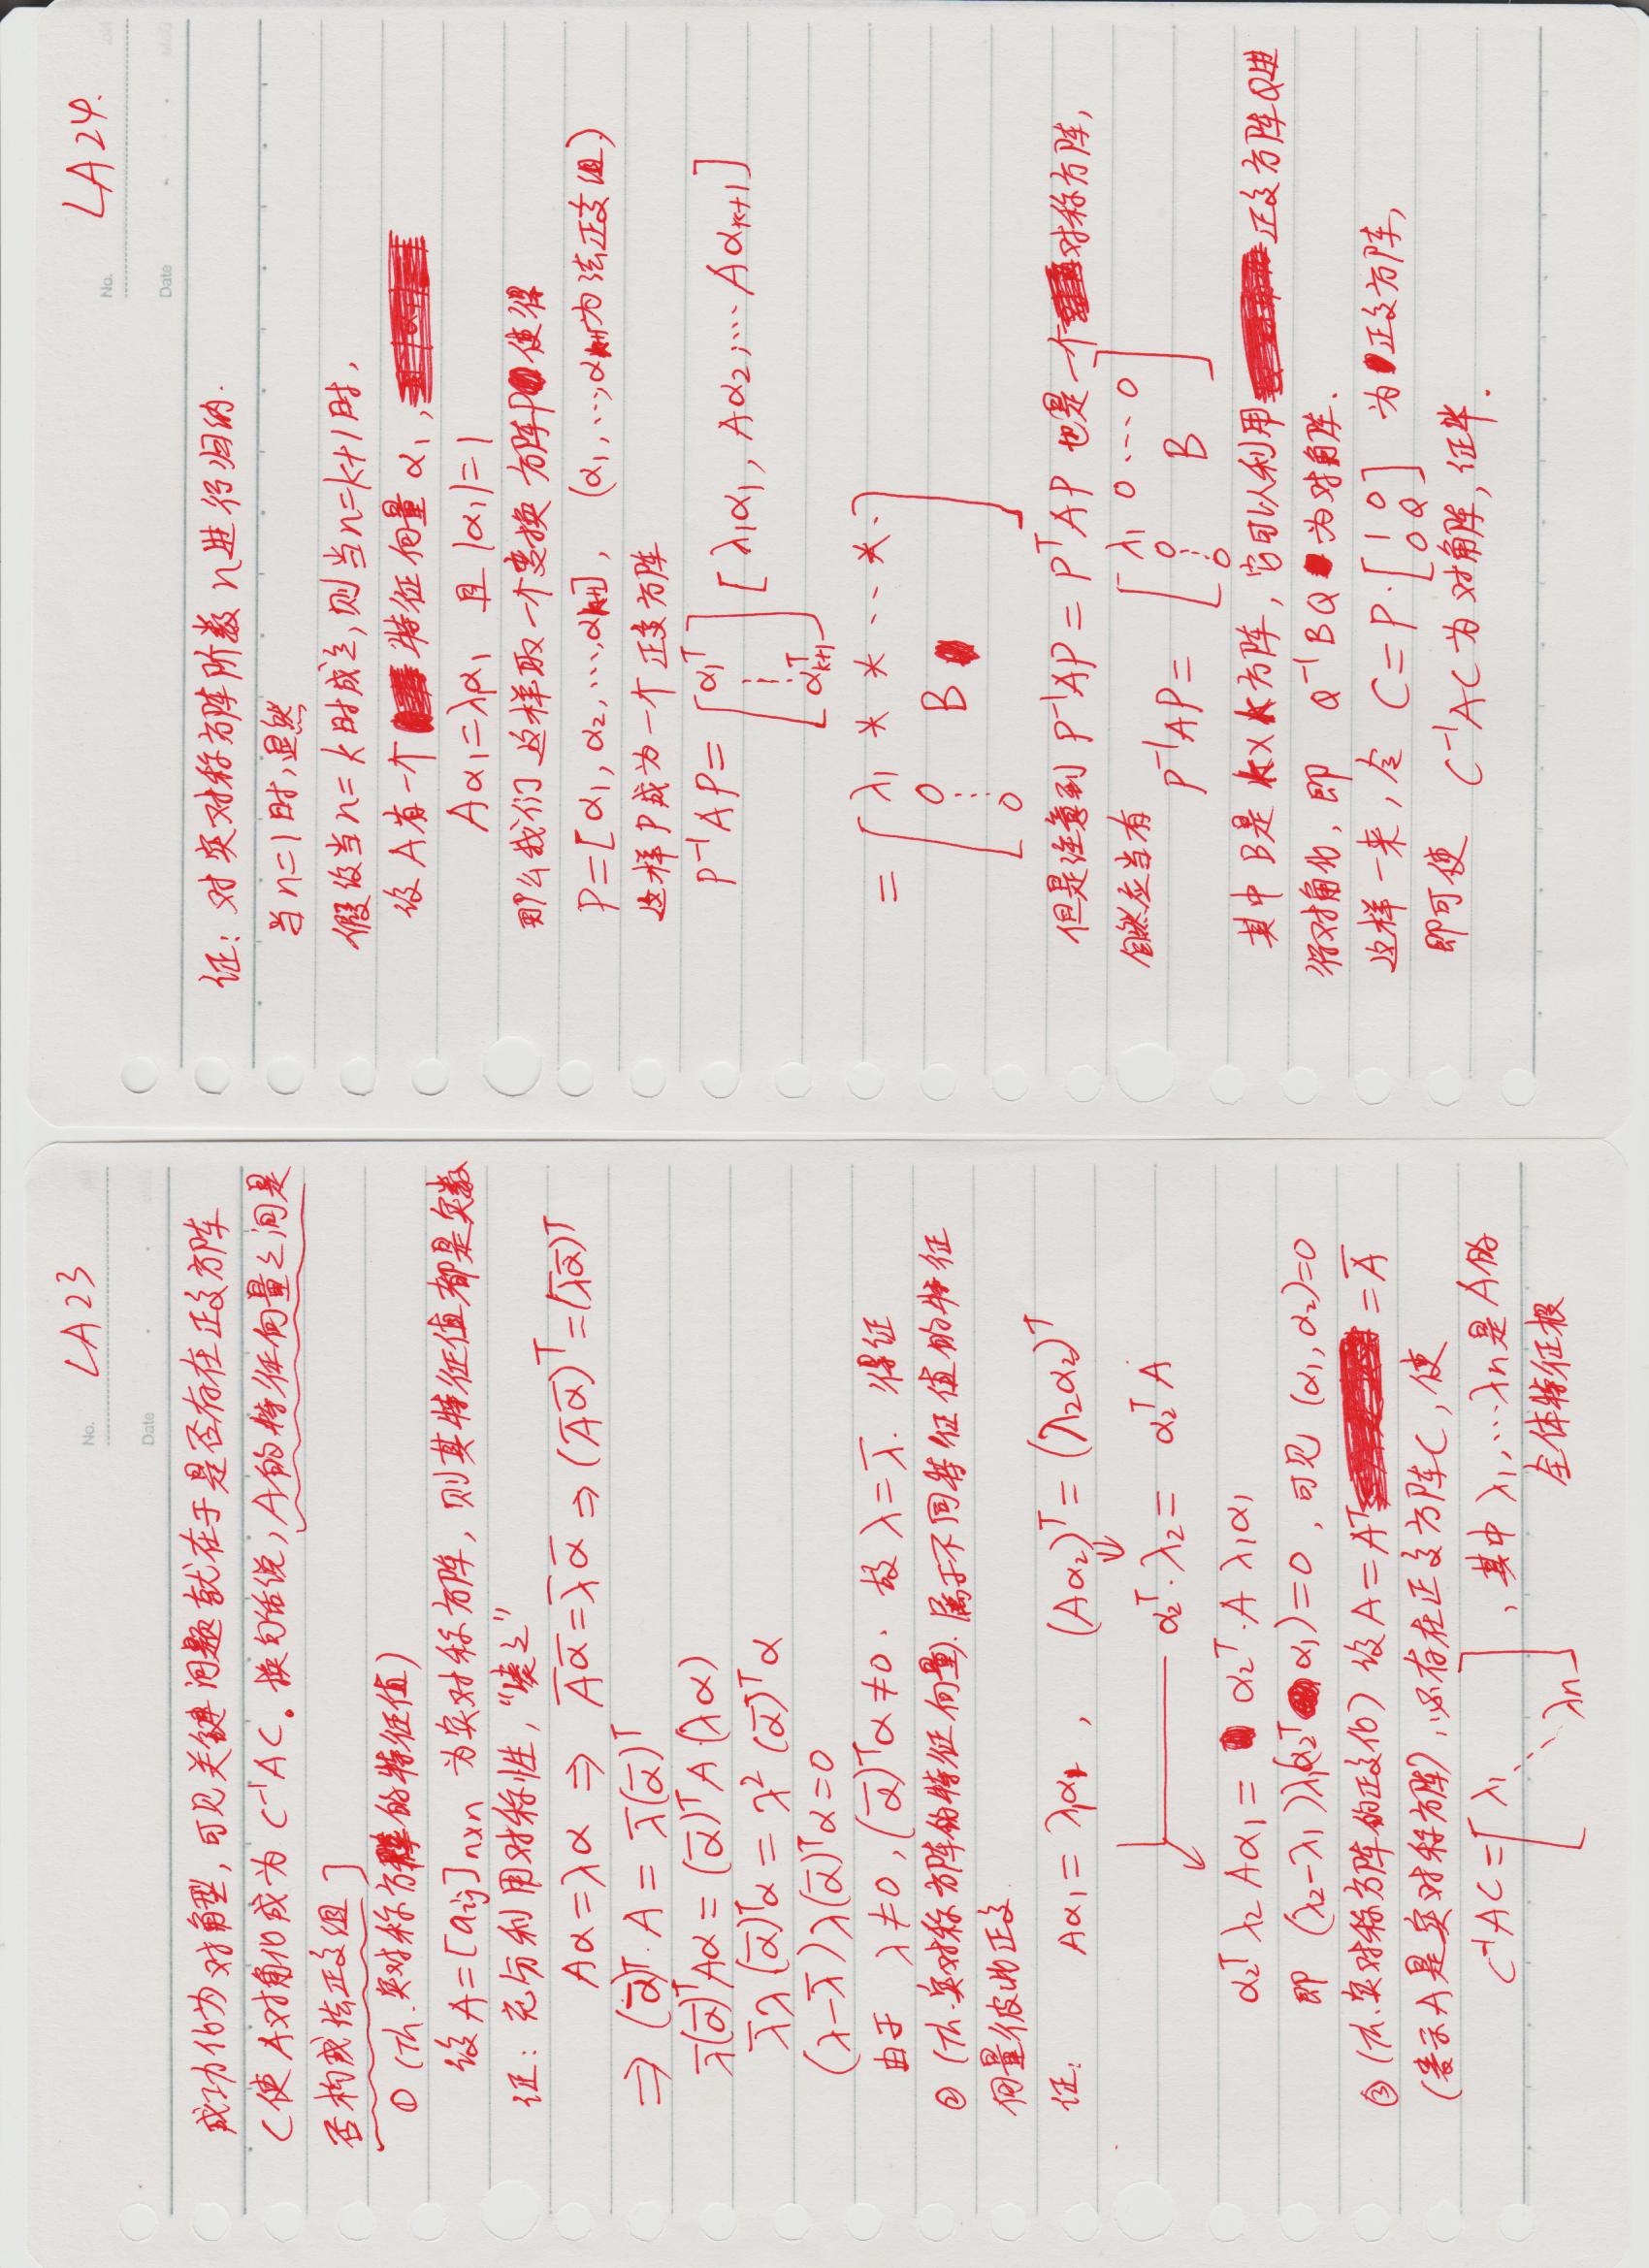 No. LA23
Date
成功化为对角型，可见关键问题就在于是否存在正交方阵
C使A对角化成为 C⁻¹AC。换句话说，A的特征向量之间是
否构成法正交组］
① (Th.实对称方阵的特征值)
设 A=[aij]n×n 为实对称方阵，则其特征值都是实数
证：充分利用对称性，“凑之”
Aα=λα ⇒ A̅α̅=λ̅α̅ ⇒ (A̅α̅)ᵀ=(λ̅α̅)ᵀ
⇒ (α̅)ᵀ·A = λ̅(α̅)ᵀ
λ̅(α̅)ᵀAα = (α̅)ᵀA·(λα)
λ̅λ(α̅)ᵀα = λ²(α̅)ᵀα
(λ-λ̅)λ(α̅)ᵀα=0
由于 λ≠0, (α̅)ᵀα≠0. 故 λ=λ̅. 得证
② (Th.实对称方阵的特征向量). 属于不同特征值的特征
向量彼此正交.
证: Aα₁=λ₁α₁, (Aα₂)ᵀ=(λ₂α₂)ᵀ
⇓
α₂ᵀ·λ₂ = α₂ᵀA
α₂ᵀλ₂Aα₁ = α₂ᵀ·Aλ₁α₁
即 (λ₂-λ₁)λ₁(α₂ᵀα₁)=0, 可见 (α₁,α₂)=0
③ (Th.实对称方阵的正交化) 设 A=Aᵀ=A̅
(表示A是实对称方阵), 必存在正交方阵C, 使
C⁻¹AC=[λ₁ ⋱ λn], 其中 λ₁,…λn是A的
全体特征根
No. LA24.
Date
证：对实对称方阵阶数n进行归纳.
当n=1时,显然
假设当n=k时成立,则当n=k+1时,
设A有一个特征向量α₁,
Aα₁=λ₁α₁ 且 |α₁|=1
那么我们这样取一个变换方阵P使得
P=[α₁,α₂,…,αk+1], (α₁,…,αk+1为法正交组)
这样P成为一个正交方阵
P⁻¹AP=[α₁ᵀ ⋮ αᵀk+1][λ₁α₁, Aα₂,… Aαk+1]
= [λ₁ * * … *.
0 B
⋮
0]
但是注意到 P⁻¹AP=PᵀAP 也是一个对称方阵,
自然应当有
P⁻¹AP= [λ₁ 0 … 0
0 B
⋮
0]
其中B是k×k方阵, 它可以利用正交方阵Q进
行对角化, 即 Q⁻¹BQ 为对角阵.
这样一来, 令 C=P·[1 0
0 Q] 为正交方阵,
即可使 C⁻¹AC为对角阵, 证毕.